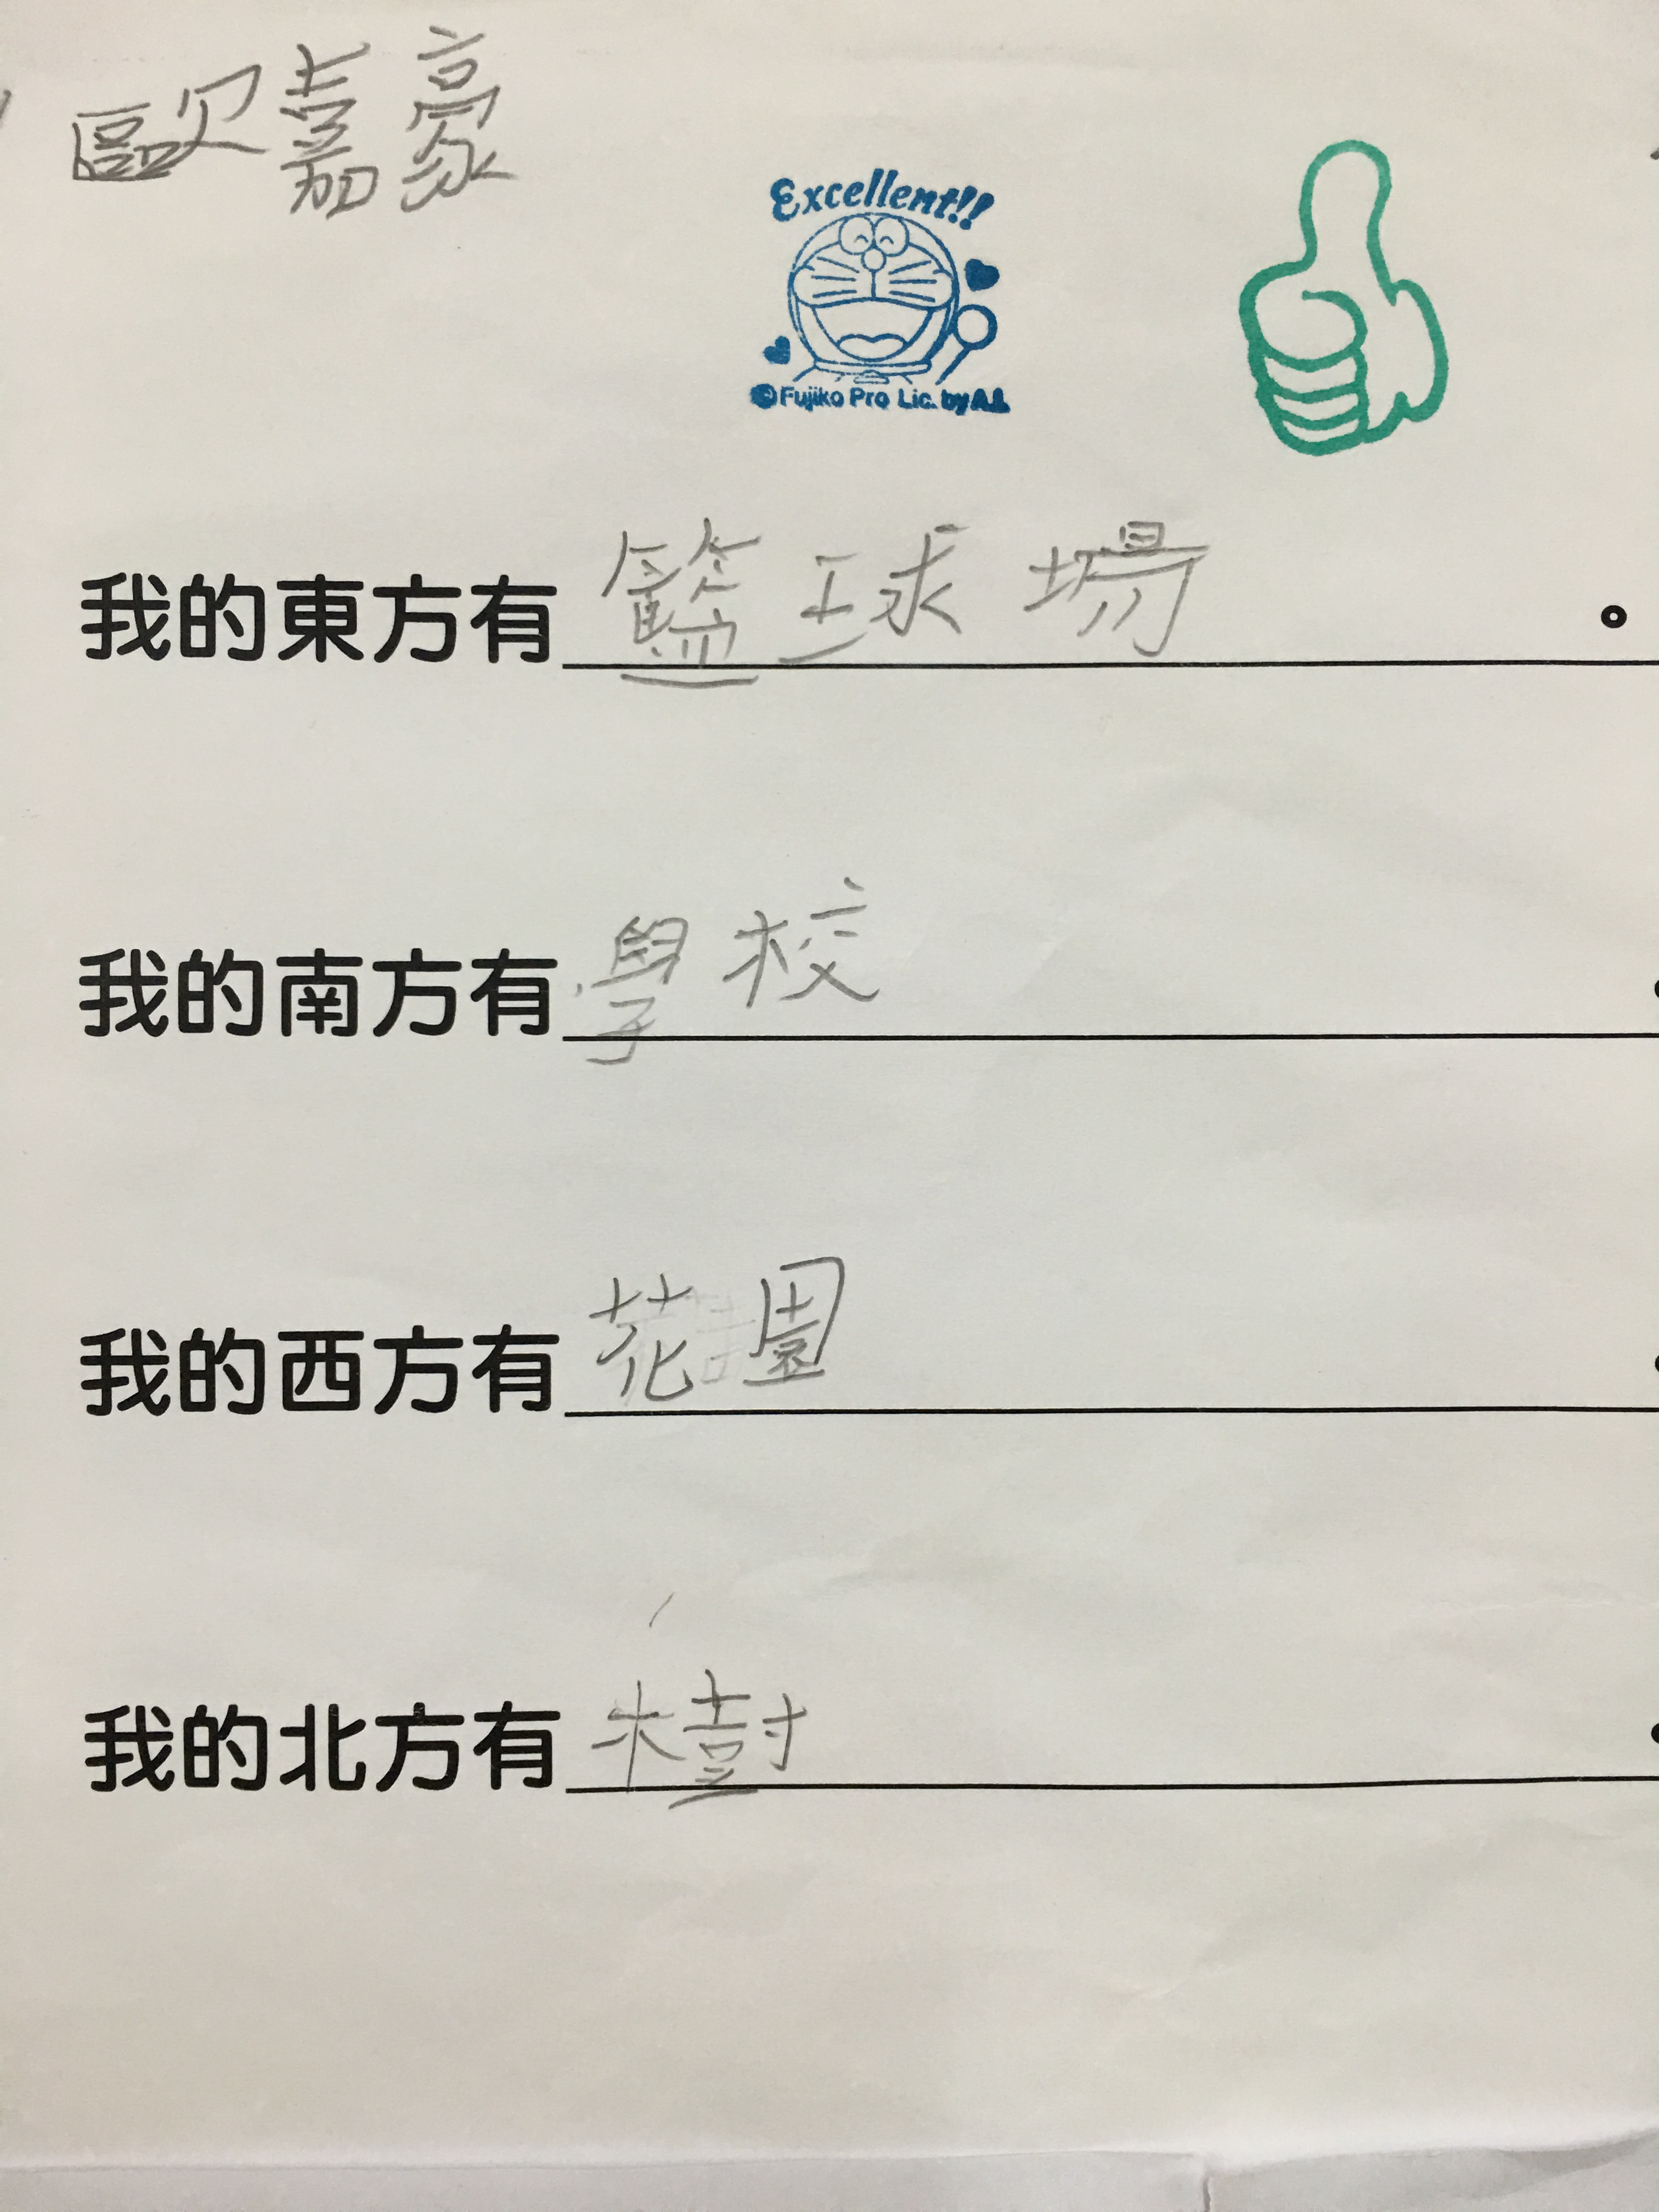 歐嘉豪
Excellent!!
©Fujiko Pro Lic. by A.I.
我的東方有籃球場。
我的南方有學校
我的西方有花園
我的北方有樹